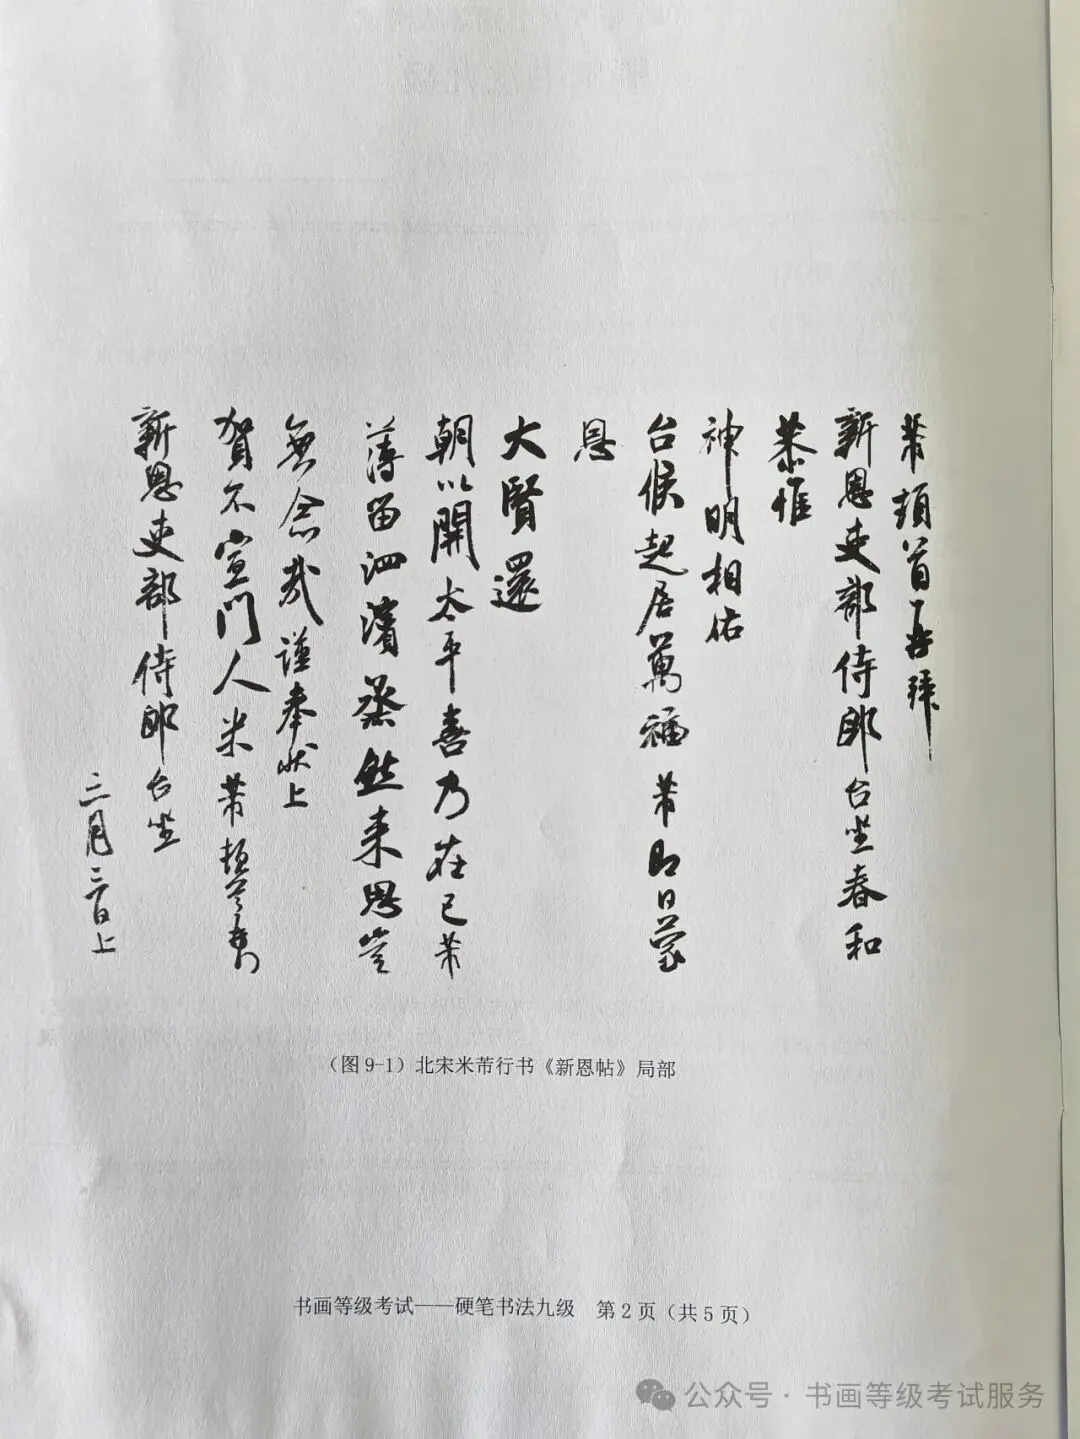 芾頓首再拜
新恩吏部侍郎台坐春和
恭惟
神明相佑
台候起居萬福芾即日蒙
恩
大賢還
朝以開太平喜乃在己芾
薄留泗濱蒸然来思豈
無念哉謹奉状上
賀不宣門人米芾頓首再拜
新恩吏部侍郎台坐
三月三日上
（图9-1）北宋米芾行书《新恩帖》局部
书画等级考试——硬笔书法九级 第2页（共5页）
公众号·书画等级考试服务